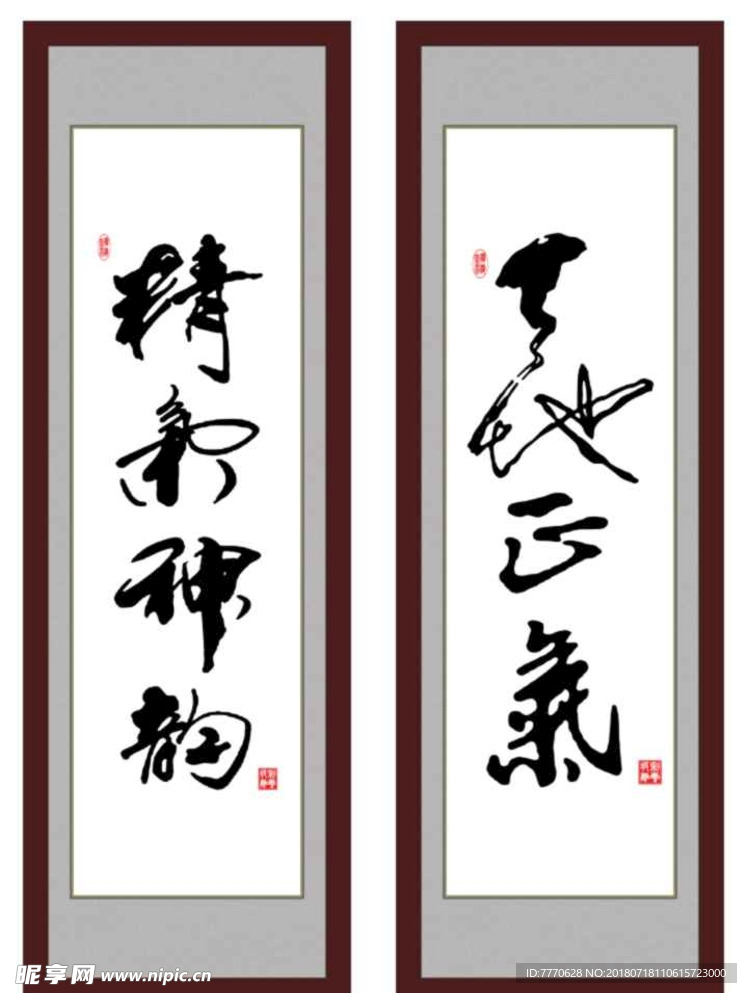 天地正氣
精氣神韵
昵享网 www.nipic.cn
ID:7770628 NO:20180718110615723000